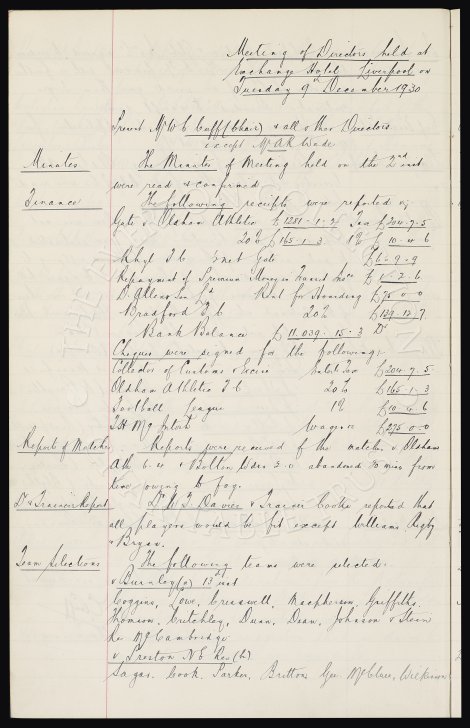 Meeting of Directors held at
Exchange Hotel Liverpool on
Tuesday 9th December 1930
Present Mr W C Cuff (Chair) & all other Directors
except Mr A R Wade
Minutes The Minutes of Meeting held on the 2nd inst
were read & confirmed
Finance The following receipts were reported
Gate v Oldham Athletic £1281-1-2 Tax £204-7-5
20% £165-1-3 1% £10-4-6
Rhyl F C Gate £6-9-9
Repayment of Insurance £1-2-6
D. Allen Son Ld Rent for Hoarding £75-0-0
Bradford F C 20% £139-12-7
Bank Balance £11,039-15-3 Dr
Cheques were signed for the following:
Collector of Customs & Excise Ent. Tax £204-7-5
Oldham Athletic F C 20% £165-1-3
Football League 1% £10-4-6
T. H. McIntosh Wages £275-0-0
Report of Matches Reports were received of the matches v Oldham
Ath 6.4 & Bolton Wdrs 3.0 abandoned 70 mins from
time owing to fog.
Dr & Trainers Report Dr W F Davies & Trainer Cooke reported that
all players would be fit except Williams Rigby
& Bryan.
Team Selections The following teams were selected:
v Burnley (a) 13th inst
Coggins, Lowe, Cresswell, Macpherson, Griffiths,
Thomson, Critchley, Dunn, Dean, Johnson & Stein
Res McCambridge
v Preston N E Res (h)
Sagar, Cook, Parker, Britton, Gee, McClure, Wilkinson